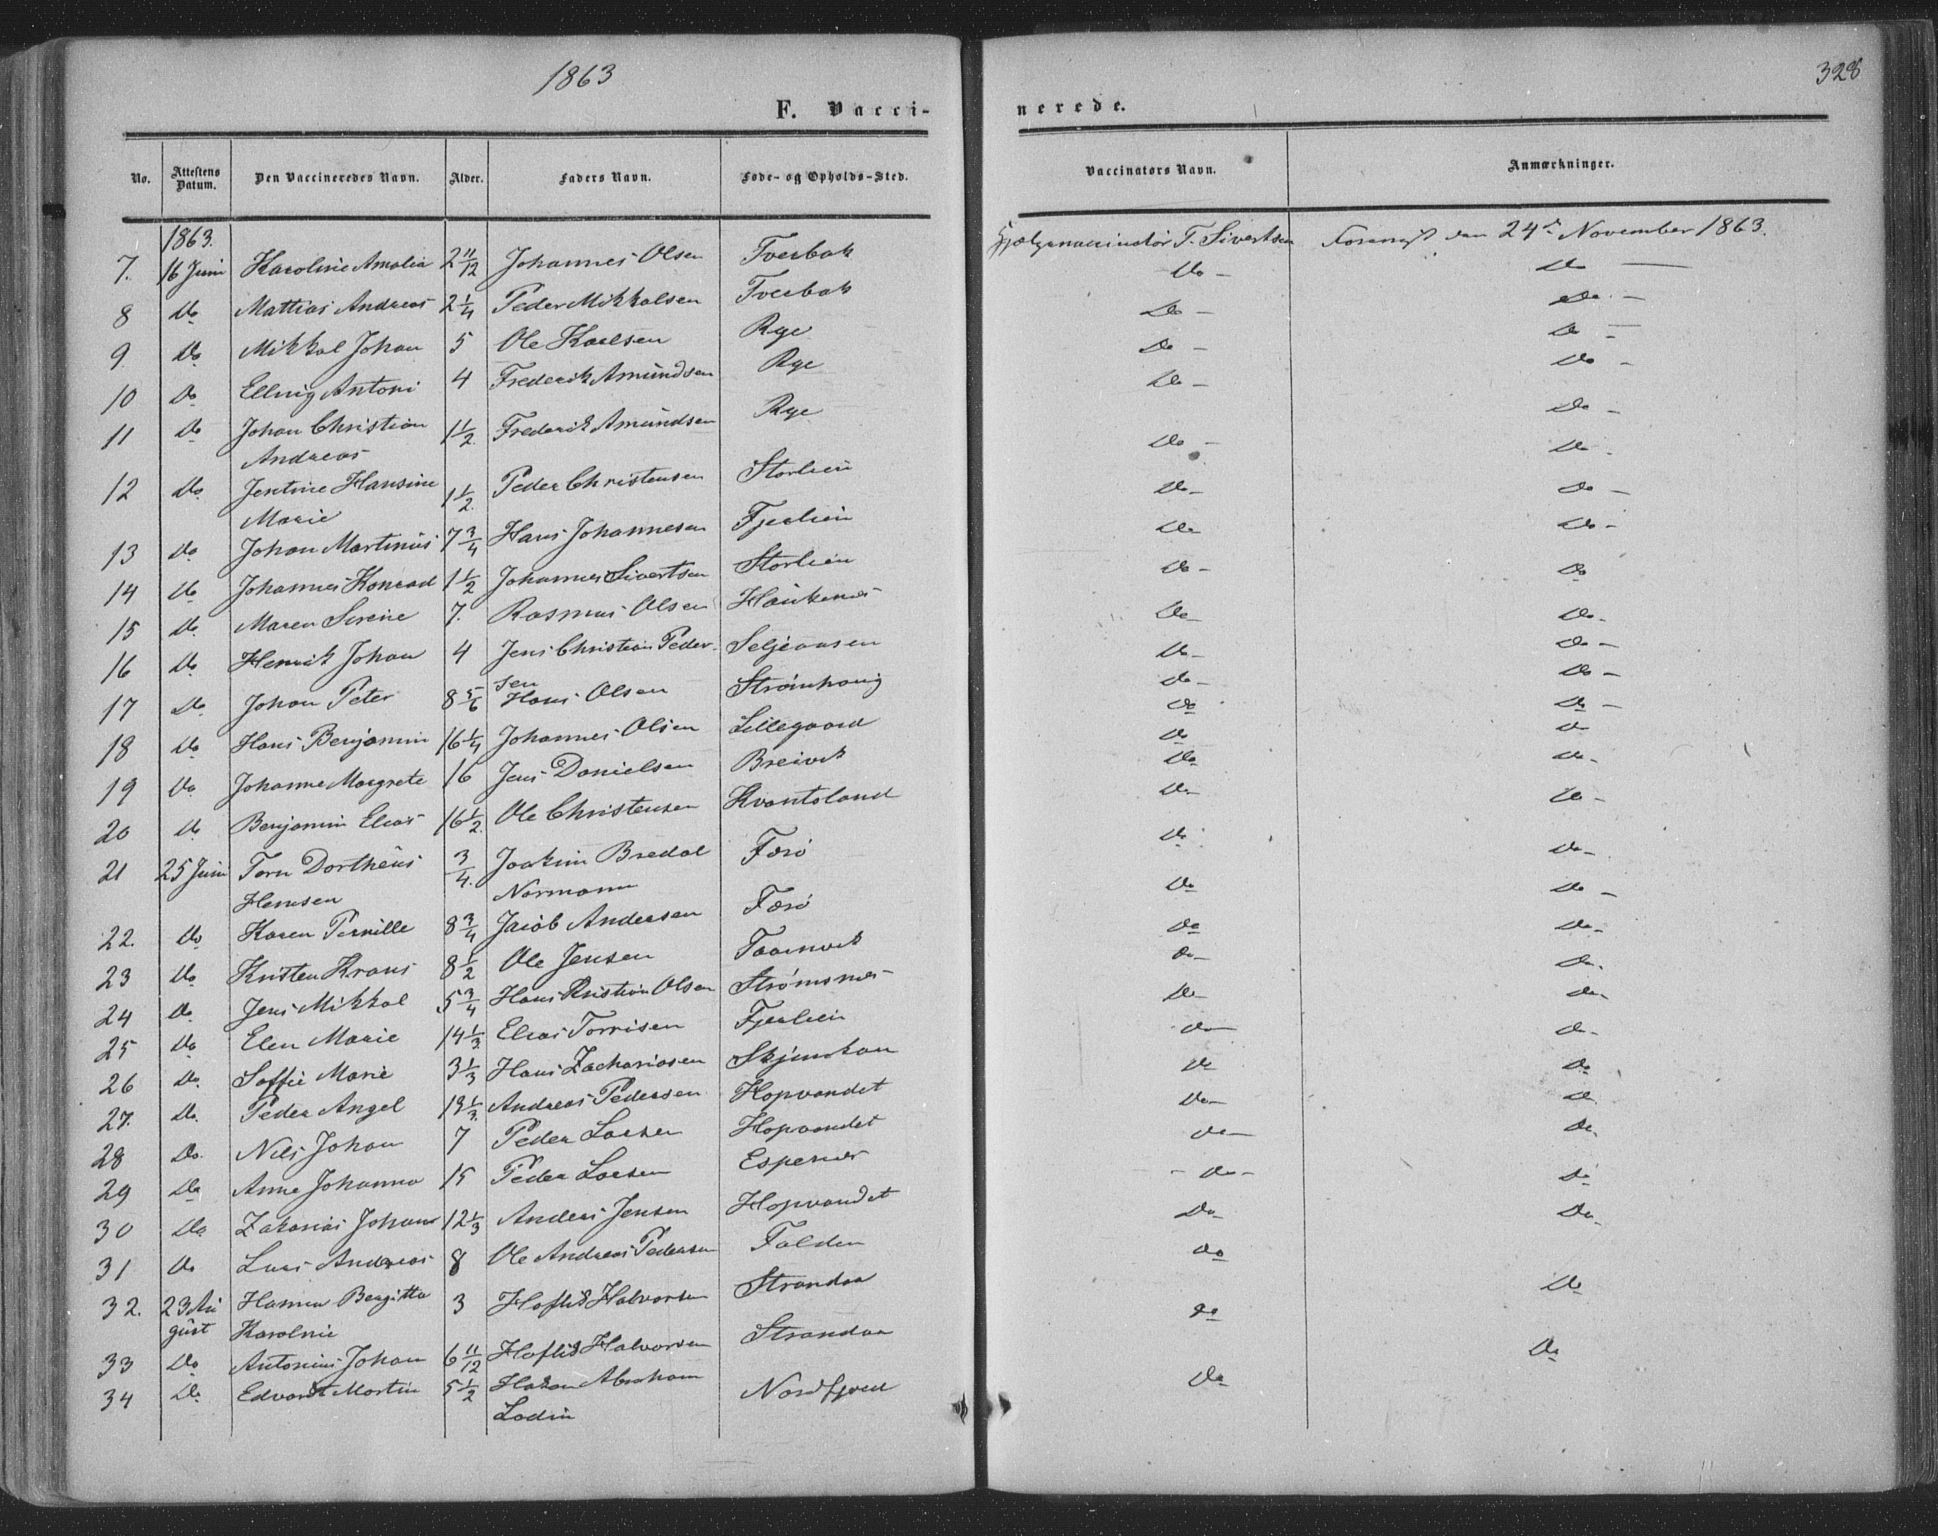 1863
328
F. Vacci-
nerede.
No. Attestens Datum. Den Vaccineredes Navn. Alder. Faders Navn. Føde- og Opholds-Sted. Vaccinators Navn. Anmærkninger.
1863.
7. 16 Juni Karoline Amalia 2 11/12 Johannes Olsen Tverbak T. Sivertsen den 24de November 1863.
8 Do Mattias Andreas 2 1/4 Peder Mikkalsen Tverbak Do - Do -
9. Do Mikkal Johan 5 Ole Karlsen Rye Do - Do -
10 Do Ellvig Antoni 4 Frederik Amundsen Rye Do - Do -
11 Do Johan Christian 1 1/2 Frederik Amundsen Rye Do - Do -
Andreas
12 Do Jentine Hansine 1 1/2 Peder Christensen Storlien Do - Do -
Marie
13 Do Johan Martinus 7 3/4 Hans Johannesen Fjerlien Do - Do -
14 Do Johannes Konrad 1 1/2 Johannes Sivertsen Storlien Do Do -
15 Do Maren Serine 7. Rasmus Olsen Haukenes Do - Do -
16 Do Henrik Johan 4 Jens Christian Peder- Seljeaasen Do Do
sen
17 Do Johan Peter 8 5/6 Hans Olsen Strømhaug Do - Do -
18 Do Hans Benjamin 16 1/4 Johannes Olsen Lillegaard Do - Do -
19 Do Johanne Margrete 16 Jens Danielsen Breivik Do Do -
20 Do Benjamin Elias 16 1/2 Ole Christensen Kvantoland Do Do -
21 25 Juni Torn Dortheus 3/4. Joakim Bredal Færø Do Do
Hemsen Normann
22. Do Karen Pernille 8 3/4 Jacob Andersen Færø Do - Do -
23 Do Kristen Krans 8 1/2 Ole Jensen Taarnvik Do Do -
24 Do Jens Mikkal 5 3/4 Hans Kristian Olsen Strømsnes Do Do -
25 Do Elen Marie 14 1/3 Elias Torrisen Fjerlien Do - Do -
26 Do. Soffie Marie 3 1/3 Hans Zachariasen Skjemstan Do - Do -
27. Do. Peder Angel 13 1/3 Andreas Pedersen Hopvandet Do - Do -
28 Do. Nils Johan 7 Peder Larsen Hopvandet Do Do
29 Do Anne Johanna 15 Peder Larsen Espenes Do - Do
30 Do Zakarias Johan 12 1/3 Anders Jensen Hopvandet Do - Do -
31 Do Lars Andreas 8 Ole Andreas Pedersen Falden - Do - Do
32. 23 Au Hanna Bergitta 3 Hoflid Halvorsen Strandaa Do - Do -
gust Karoline
33 Do Antonius Johan 6 11/12 Hoflid Halvorsen Strandaa Do Do
34 Do Edvardt Martin 5 1/2 Hakan Abraham Nordfjord Do Do
Lodin